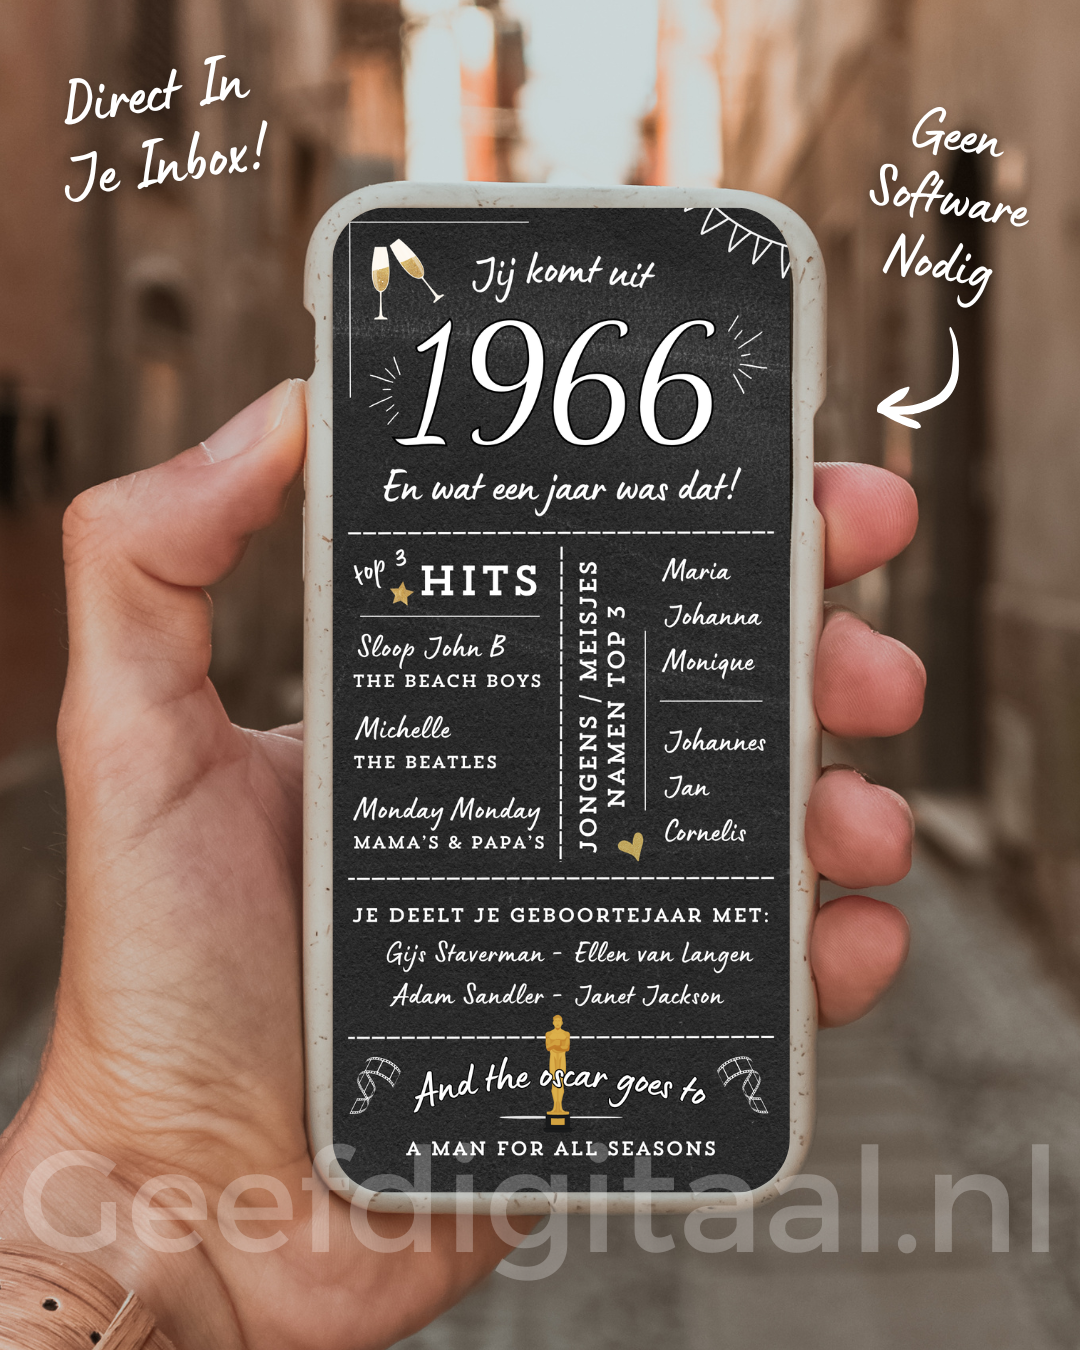 Direct In
Je Inbox!
Geen
Software
Nodig
Jij komt uit
1966
En wat een jaar was dat!
top 3
HITS
Sloop John B
THE BEACH BOYS
Michelle
THE BEATLES
Monday Monday
MAMA'S & PAPA'S
JONGENS / MEISJES
NAMEN TOP 3
Maria
Johanna
Monique
Johannes
Jan
Cornelis
JE DEELT JE GEBOORTEJAAR MET:
Gijs Staverman - Ellen van Langen
Adam Sandler - Janet Jackson
And the oscar goes to
A MAN FOR ALL SEASONS
Geefdigitaal.nl